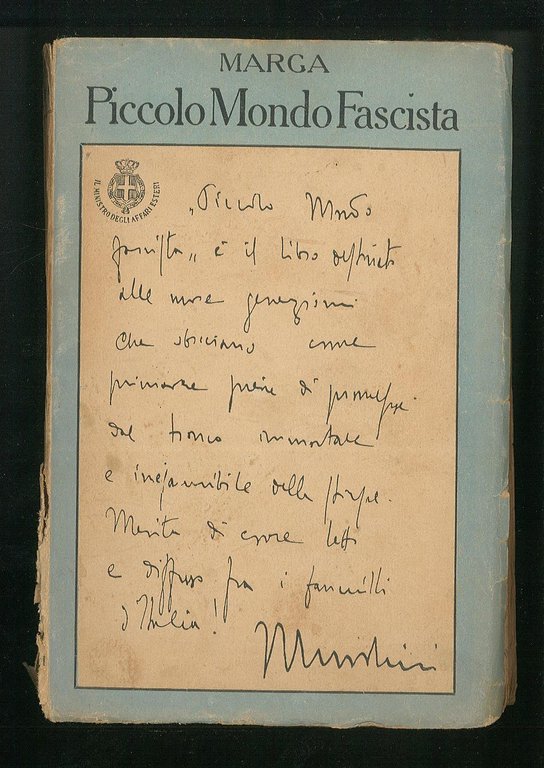 MARGA
Piccolo Mondo Fascista
IL MINISTRO DEGLI AFFARI ESTERI
„Piccolo Mondo
fascista„ è il libro destinato
alle nuove generazioni
che sbocciano come
primavere piene di promesse
dal tronco immortale
e inesauribile della stirpe.
Merita di essere letto
e diffuso fra i fanciulli
d'Italia!
Mussolini